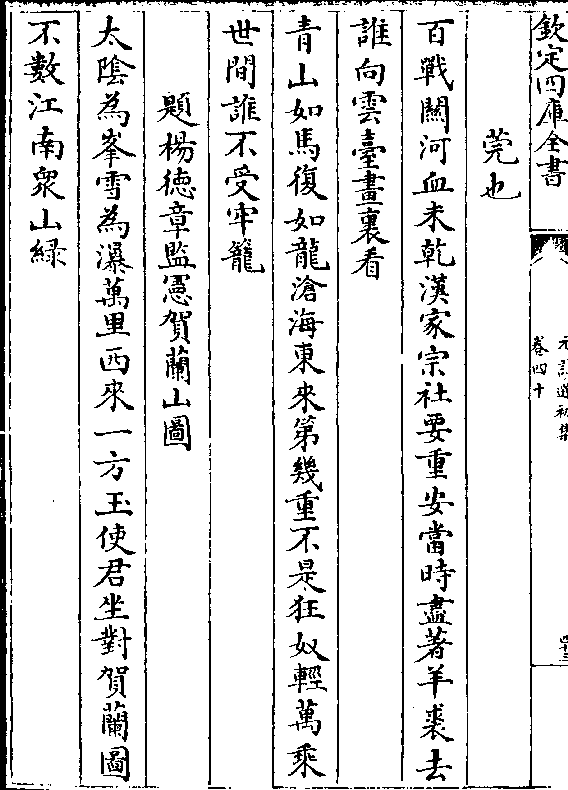 欽定四庫全書
元詩選初集
卷四十
莞也
百戰關河血未乾漢家宗社要重安當時盡著羊裘去
誰向雲臺畫裏看
青山如馬復如龍滄海東來第幾重不是狂奴輕萬乘
世間誰不受牢籠
題楊徳章監憲賀蘭山圖
太陰為峯雪為瀑萬里西來一方玉使君坐對賀蘭圖
不數江南衆山緑